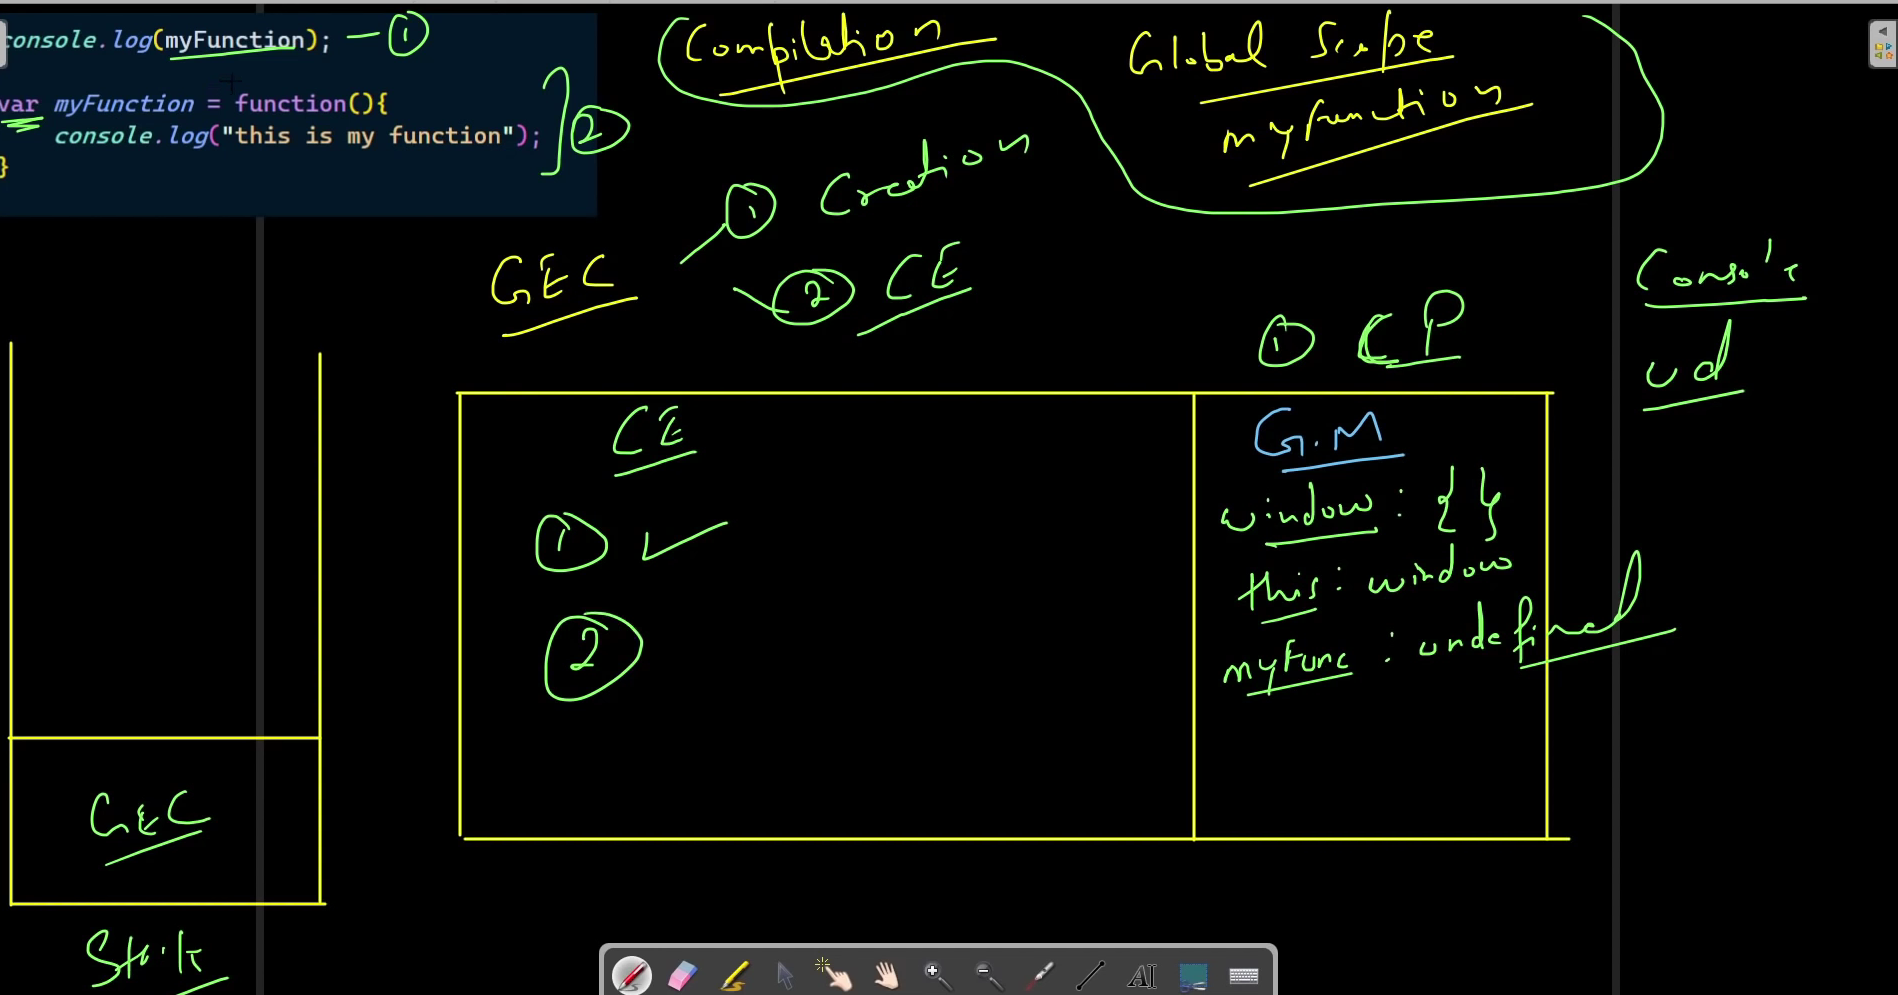 console.log(myFunction); — ①
var myFunction = function(){
console.log("this is my function");
}
②
Compilation
Global Scope
myfunction
GEC
① Creation
② CE
Console
ud
① CP
CE
①
②
G.M
window : { }
this : window
myFunc : undefined
GEC
Stack
AI